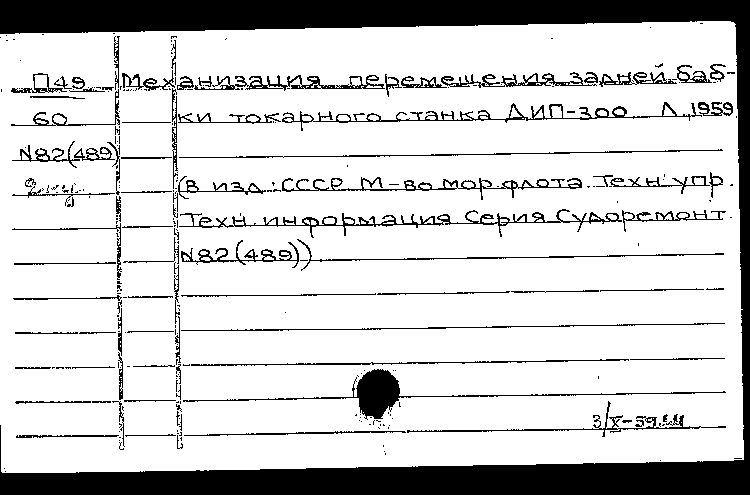 П49 Механизация перемещения задней баб-
60 ки токарного станка ДИП-300 Л., 1959
N82(489)
(В изд.: СССР. М-во мор. флота. Техн. упр.
Техн. информация. Серия Судоремонт.
N82(489))
3/X-59